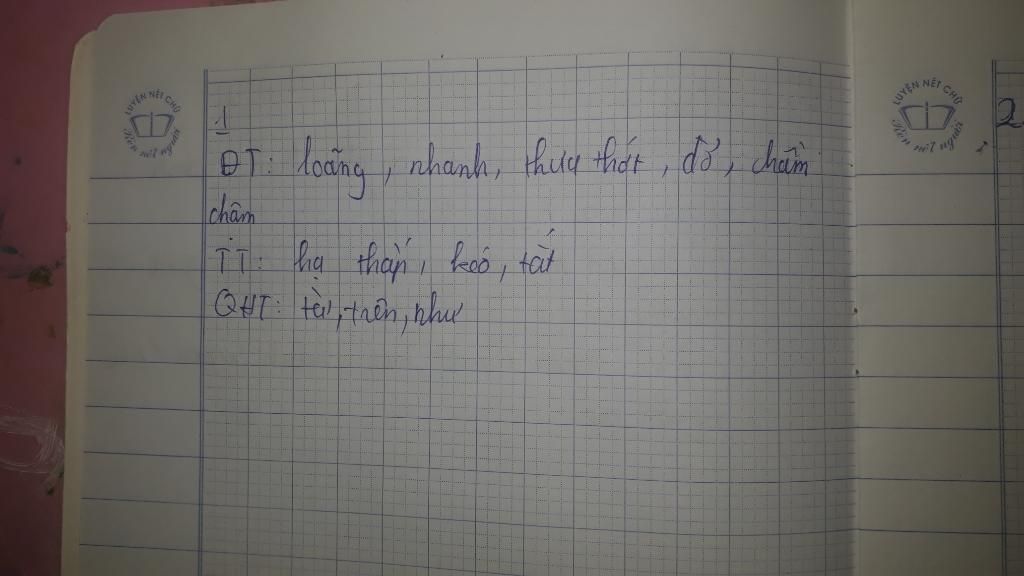 LUYỆN NÉT CHỮ
Rèn nết người
1
ĐT: loãng, nhanh, thưa thớt, đỏ, chầm
chậm
TT: hạ thấp, kéo, tắt
QHT: từ, trên, như
LUYỆN NÉT CHỮ
Rèn nết người
2